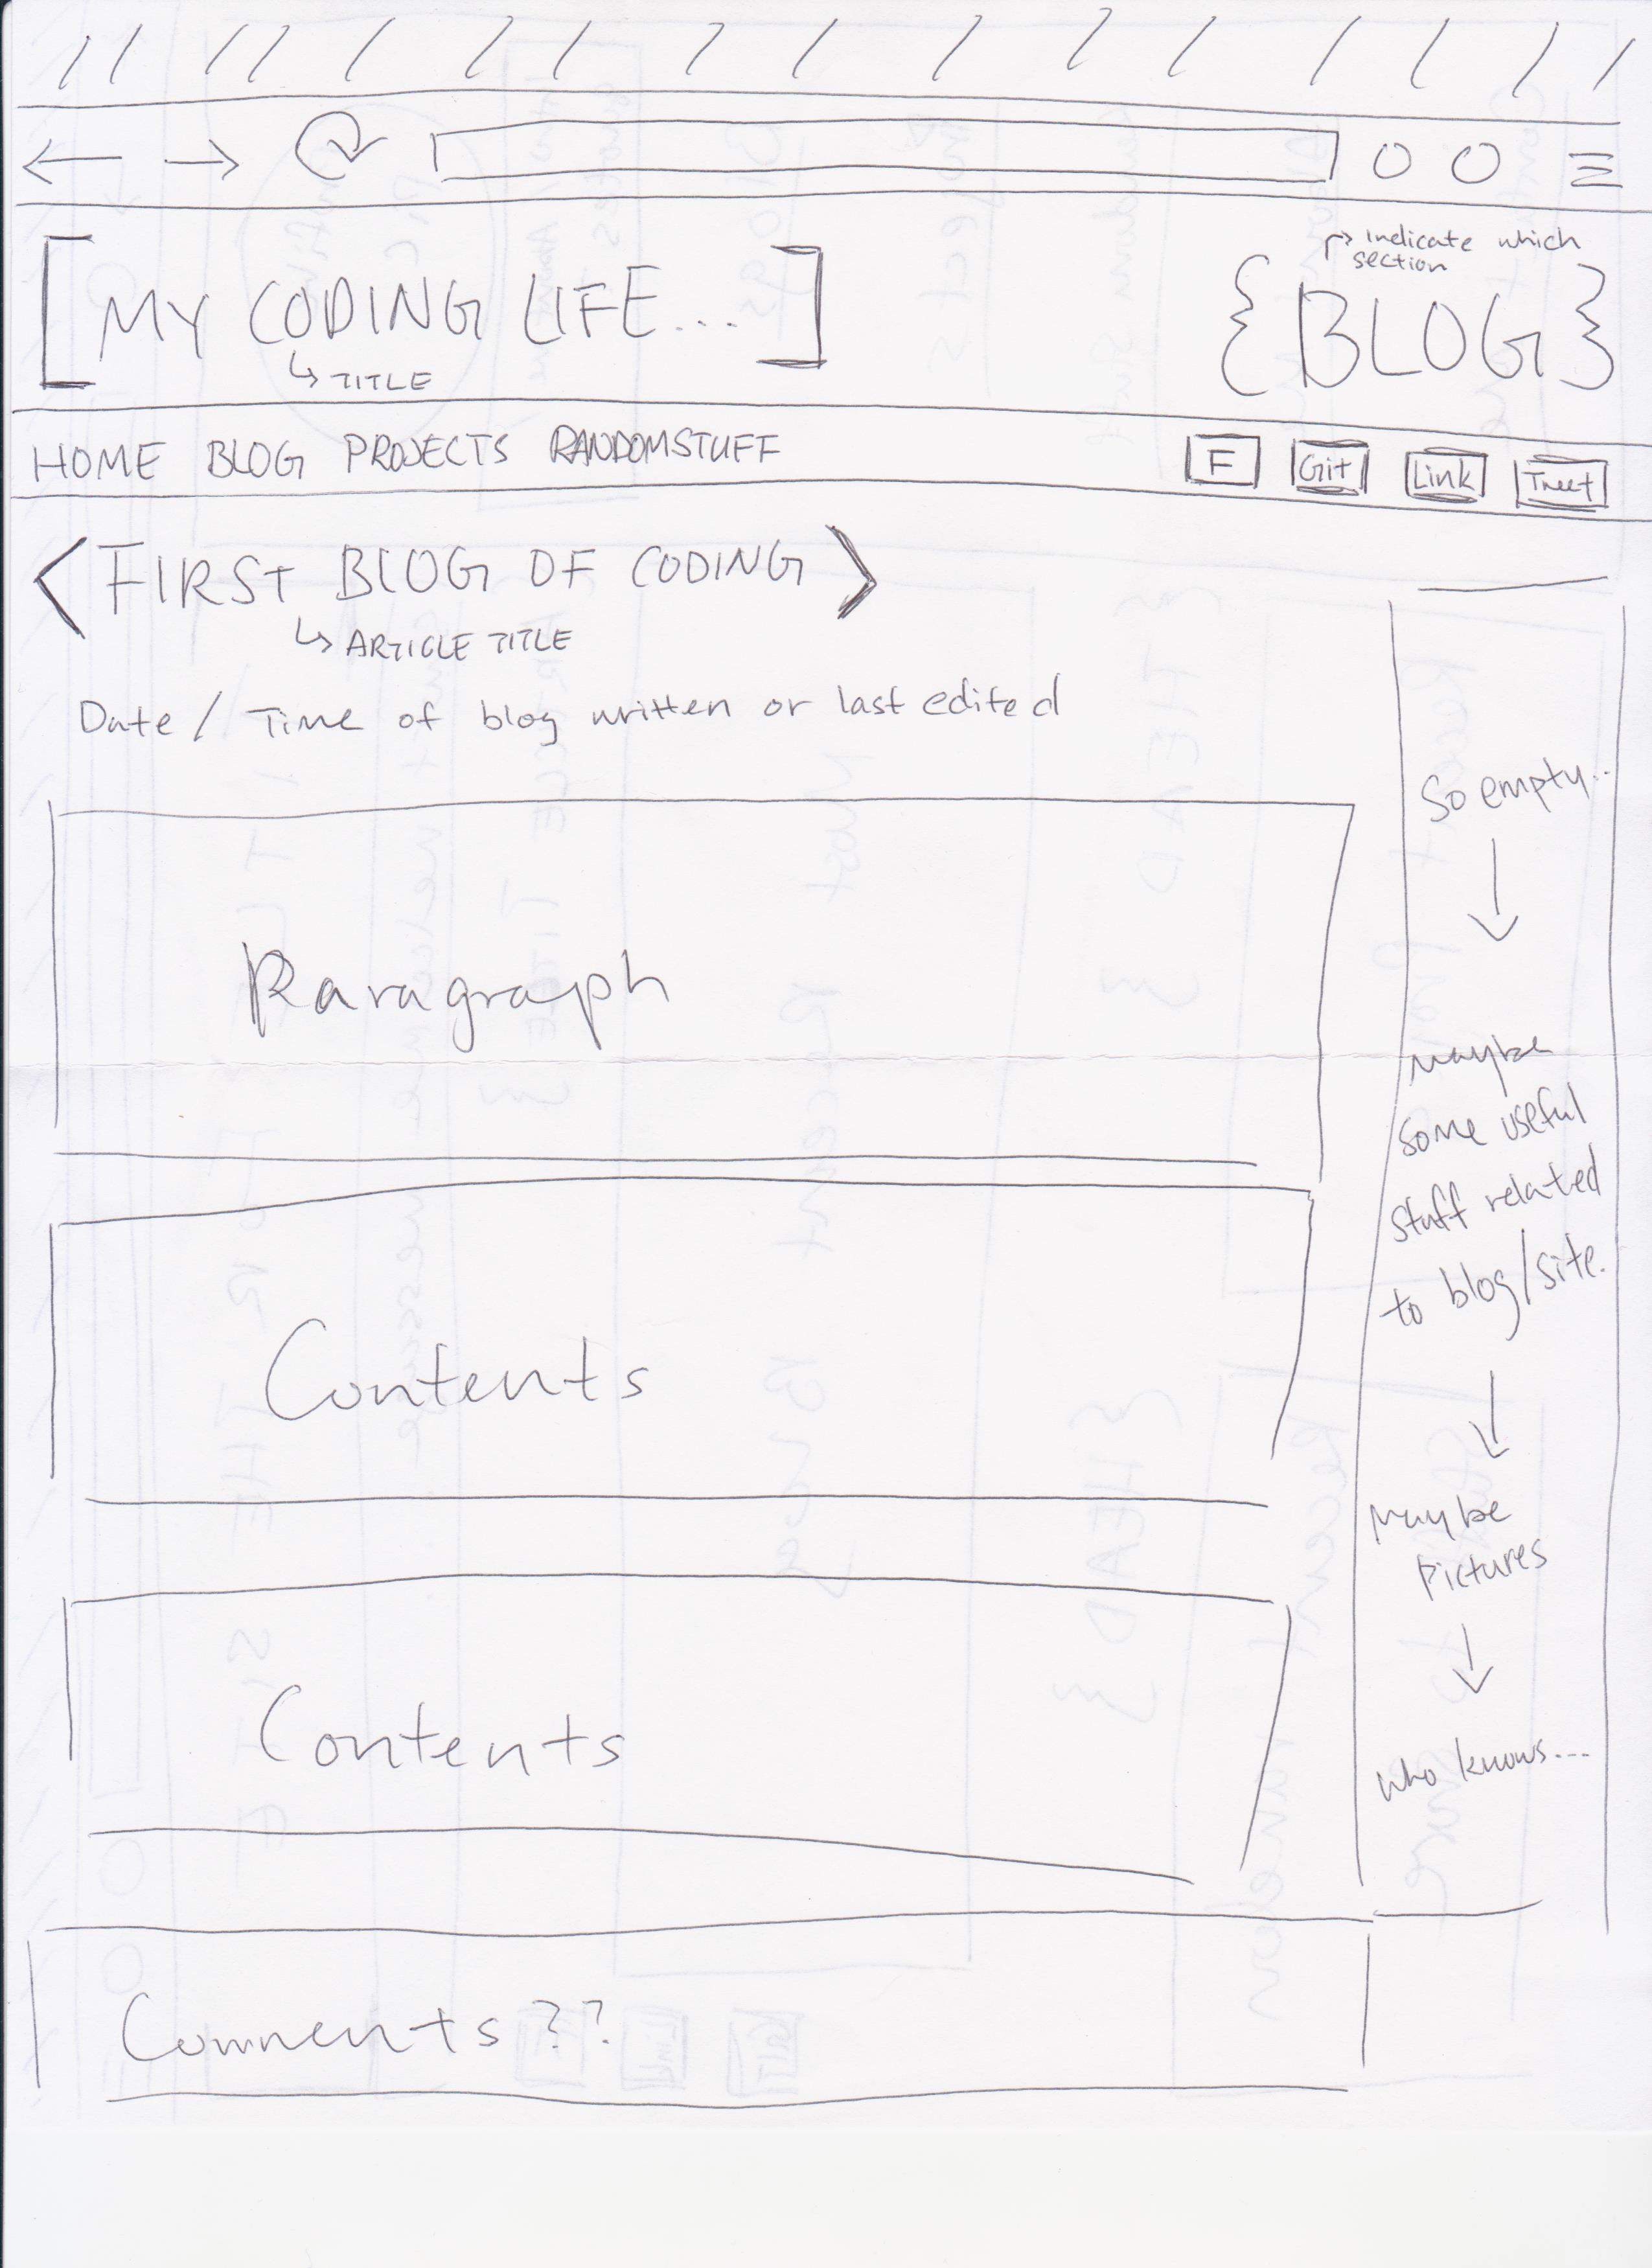 indicate which
section
[MY CODING LIFE...]
↳ TITLE
{BLOG}
HOME BLOG PROJECTS RANDOMSTUFF
F Git Link Tweet
<FIRST BLOG OF CODING>
↳ ARTICLE TITLE
Date / Time of blog written or last edited
Paragraph
Contents
Contents
Comments??
So empty..
maybe
some useful
stuff related
to blog/site.
Maybe
pictures
who knows...